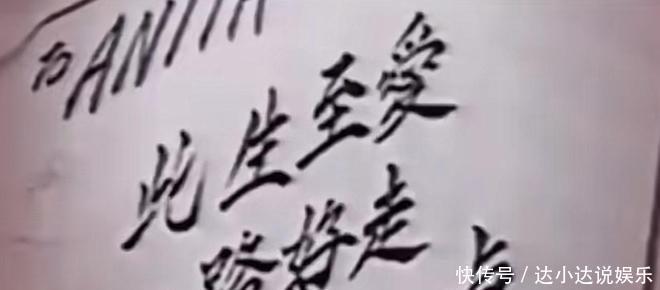 TO ANITA
此生至爱
路好走
快传号 / 达小达说娱乐